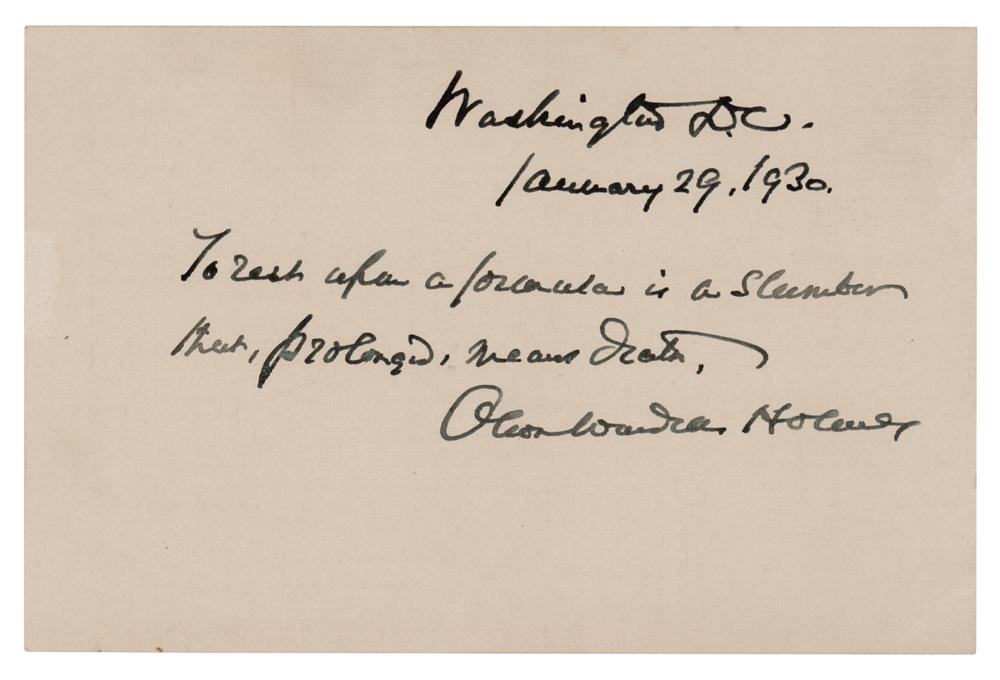 Washington D.C.
January 29, 1930.
To rest upon a formula is a slumber
that, prolonged, means death,
Oliver Wendell Holmes